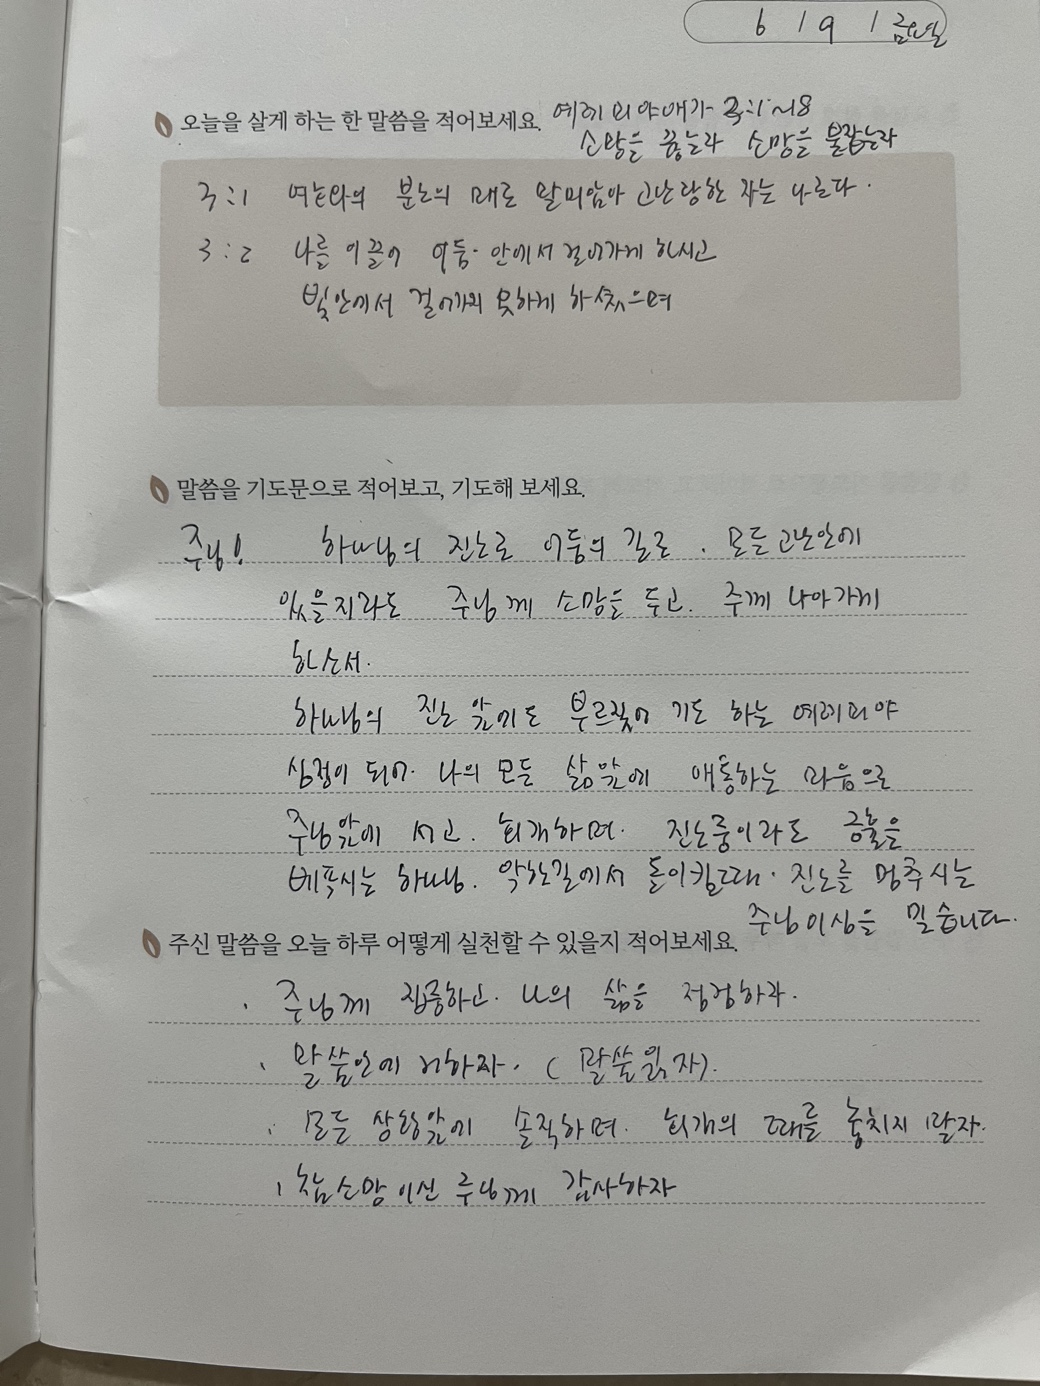 6 / 9 / 금요일
오늘을 살게 하는 한 말씀을 적어보세요. 예레미야애가 3:1~18
소망을 끊는라 소망을 붙잡는라
3:1 여호와의 분노의 매로 말미암아 고난당한 자는 나로다.
3:2 나를 이끌어 어둠 안에서 걸어가게 하시고
빛안에서 걸어가지 못하게 하셨으며
말씀을 기도문으로 적어보고, 기도해 보세요.
주님! 하나님의 진노로 어둠의 길로. 모든 고난안에
있을지라도 주님께 소망을 두고. 주께 나아가게
하소서.
하나님의 진노 앞에도 부르짖어 기도 하는 예레미야
심정이 되어. 나의 모든 삶앞에 애통하는 마음으로
주님앞에 서고. 회개하며. 진노중이라도 긍휼을
베푸시는 하나님. 악한길에서 돌이킬때. 진노를 멈추시는
주님이심을 믿습니다.
주신 말씀을 오늘 하루 어떻게 실천할 수 있을지 적어보세요.
. 주님께 집중하고. 나의 삶을 점검하라.
. 말씀안에 거하자. (말씀읽자).
. 모든 상황앞에 솔직하며. 회개의 때를 놓치지 말자.
참소망이신 주님께 감사하자